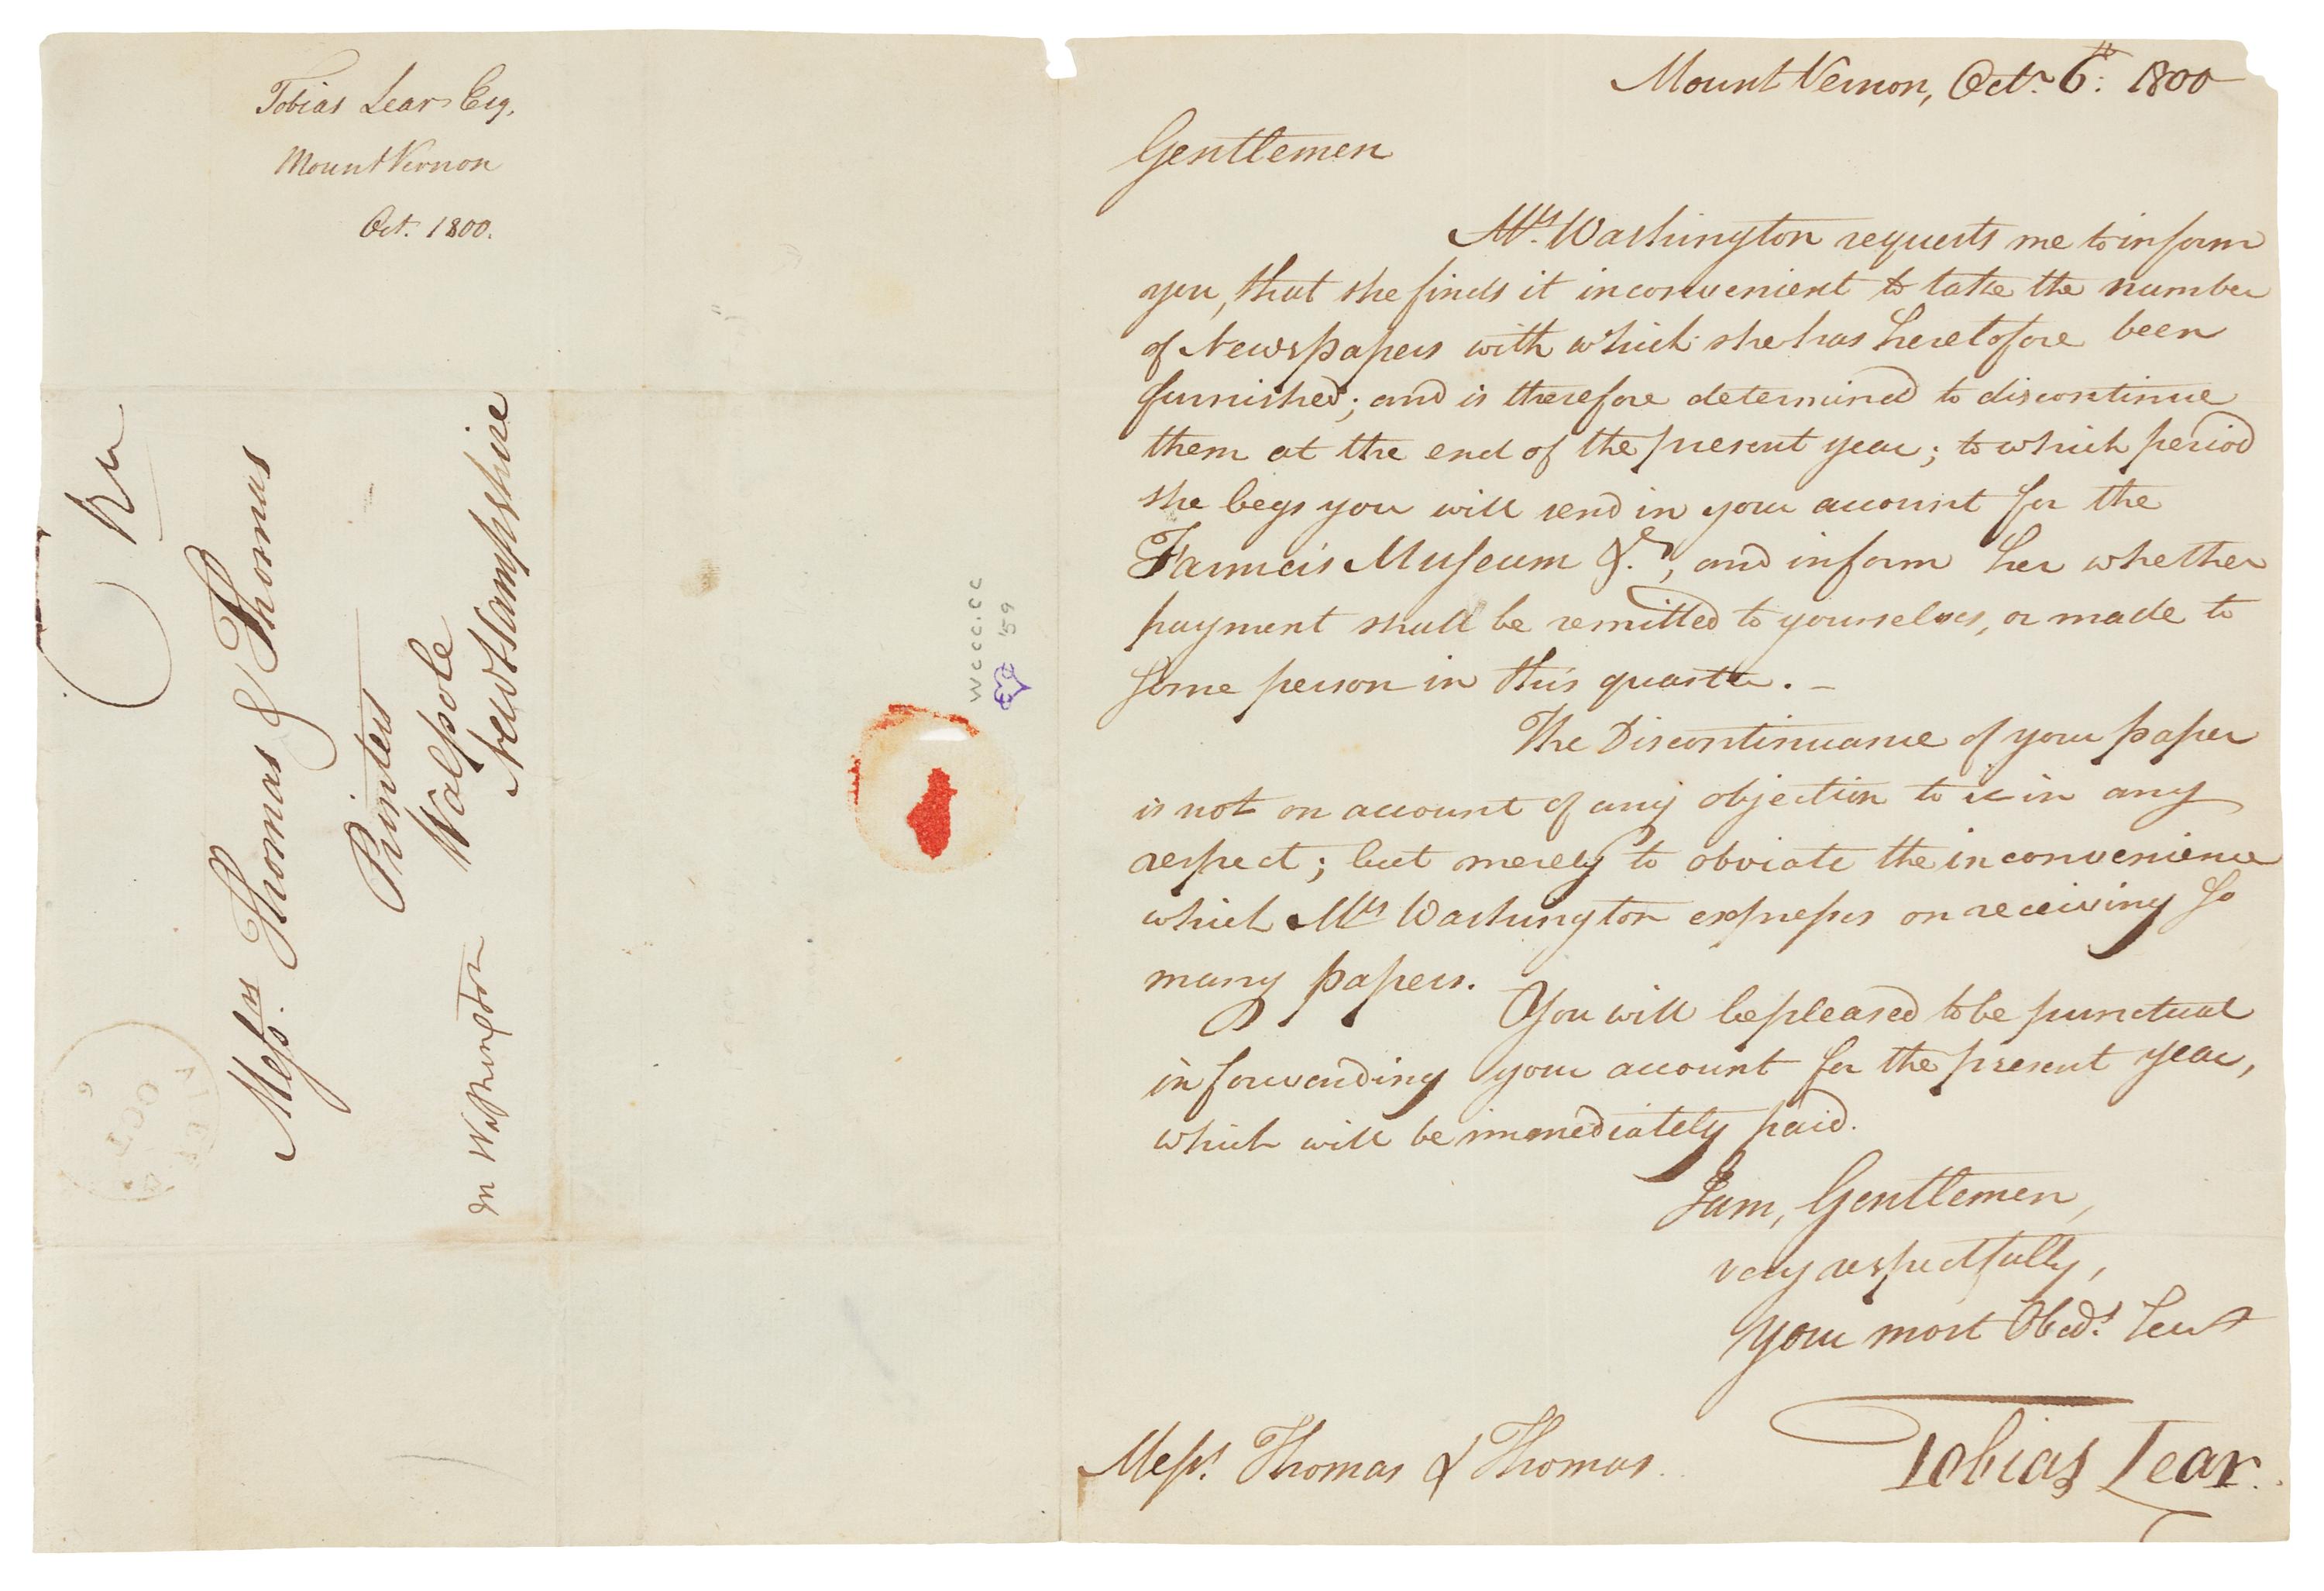 Tobias Lear Esq.
Mount Vernon
Oct. 1800.
Messrs. Thomas & Thomas
Printers
Walpole
New Hampshire
M Washington
OCT
6
wccc.cc
'59
Mount Vernon, Octr. 6th: 1800
Gentlemen
Mrs. Washington requests me to inform
you, that she finds it inconvenient to take the number
of Newspapers with which she has heretofore been
furnished; and is therefore determined to discontinue
them at the end of the present year; to which period
she begs you will send in your account for the
Farmer's Museum &c., and inform her whether
payment shall be remitted to yourselves, or made to
some person in this quarter. –
The Discontinuance of your paper
is not on account of any objection to it in any
respect; but merely to obviate the inconvenience
which Mrs Washington expresses on receiving so
many papers.
You will be pleased to be punctual
in forwarding your account for the present year,
which will be immediately paid.
I am, Gentlemen,
very respectfully,
Your most Obedt. Servt
Tobias Lear.
Messrs. Thomas & Thomas.